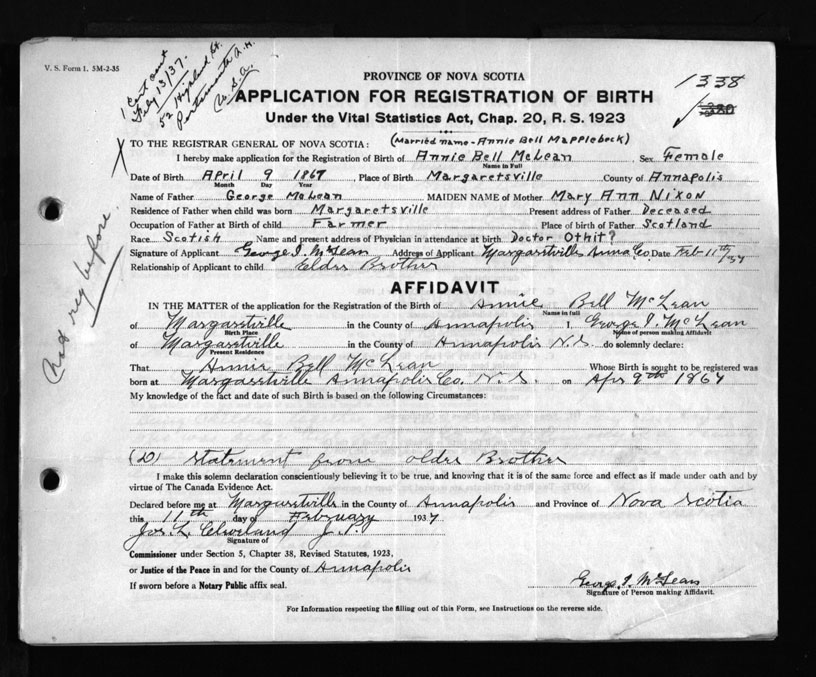 V. S. Form 1. 5M-2-35
1 Cert sent
Feby 13/37.
52 Highland St.
Portsmouth N. H.
U. S. A.
1338
PROVINCE OF NOVA SCOTIA
APPLICATION FOR REGISTRATION OF BIRTH
Under the Vital Statistics Act, Chap. 20, R. S. 1923
(Married name - Annie Bell Mapplebeck)
TO THE REGISTRAR GENERAL OF NOVA SCOTIA:
I hereby make application for the Registration of Birth of Annie Bell McLean Sex Female
Name in Full
Date of Birth April 9 1867 Place of Birth Margaretsville County of Annapolis
Month Day Year
Name of Father George McLean MAIDEN NAME of Mother Mary Ann Nixon
Residence of Father when child was born Margaretsville Present address of Father Deceased
Occupation of Father at Birth of Child Farmer Place of birth of Father Scotland
Race Scotish Name and present address of Physician in attendance at birth Doctor Othit?
Signature of Applicant George I. McLean Address of Applicant Margaretville Anna Co. Date Feb 11th/37
Relationship of Applicant to child Elder Brother
Not reg before.
AFFIDAVIT
IN THE MATTER of the application for the Registration of the Birth of Annie Bell McLean
Name in full
of Margaretville in the County of Annapolis I, George I. McLean
Birth Place Name of person making Affidavit
of Margaretville in the County of Annapolis N.S. do solemnly declare:
Present Residence
That Annie Bell McLean Whose Birth is sought to be registered was
born at Margaretville Annapolis Co. N.S. on Apr 9th 1867
My knowledge of the fact and date of such Birth is based on the following Circumstances:
(D) Statement from older Brother
I make this solemn declaration conscientiously believing it to be true, and knowing that it is of the same force and effect as if made under oath and by
virtue of The Canada Evidence Act.
Declared before me at Margaretville in the County of Annapolis and Province of Nova Scotia
this 11th day of February 1937
Jos. L. Cleveland J.P.
Signature of
Commissioner under Section 5, Chapter 38, Revised Statutes, 1923,
or Justice of the Peace in and for the County of Annapolis
If sworn before a Notary Public affix seal.
George I. McLean
Signature of Person making Affidavit.
For Information respecting the filling out of this Form, see Instructions on the reverse side.